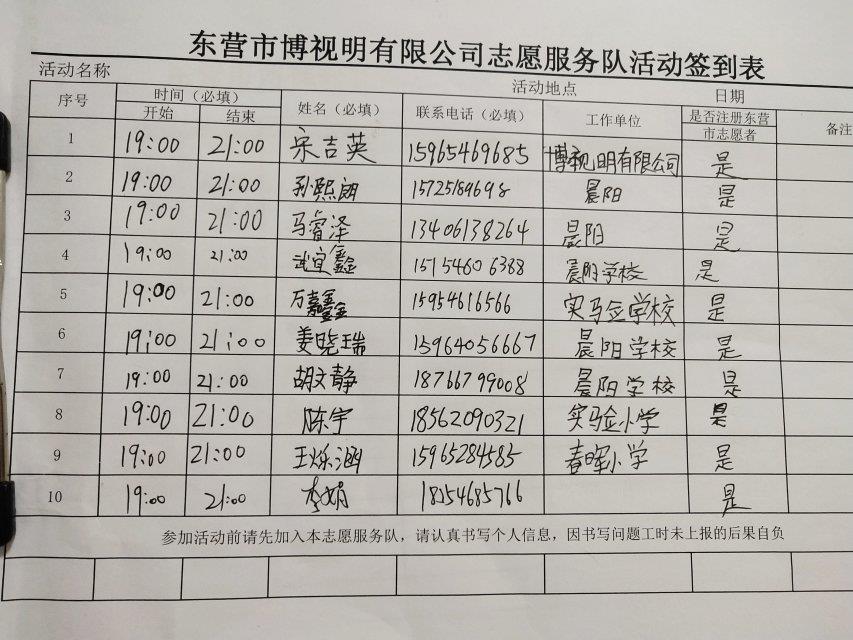 东营市博视明有限公司志愿服务队活动签到表
活动名称 活动地点 日期
序号 时间（必填） 姓名（必填） 联系电话（必填） 工作单位 是否注册东营市志愿者 备注
开始 结束
1 19:00 21:00 宋吉英 15965469685 博视明有限公司 是
2 19:00 21:00 孙熙朗 15725189698 晨阳 是
3 19:00 21:00 马睿泽 13406138264 晨阳 是
4 19:00 21:00 武宜鑫 15154606388 晨阳学校 是
5 19:00 21:00 万嘉鑫 15954616566 实验学校 是
6 19:00 21:00 姜晓瑞 15964056667 晨阳学校 是
7 19:00 21:00 胡文静 18766799008 晨阳学校 是
8 19:00 21:00 陈宇 18562090321 实验小学 是
9 19:00 21:00 王烁涵 15965284585 春晖小学 是
10 19:00 21:00 李娟 18254685766 是
参加活动前请先加入本志愿服务队，请认真书写个人信息，因书写问题工时未上报的后果自负